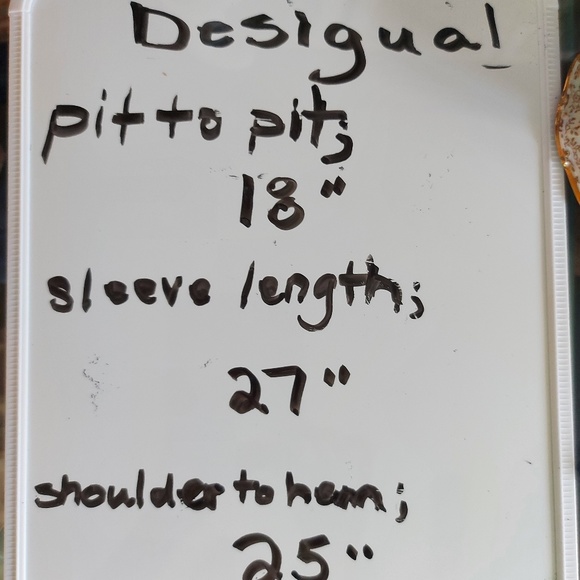 Desigual
pit to pit;
18"
sleeve length;
27"
shoulder to hem;
25"